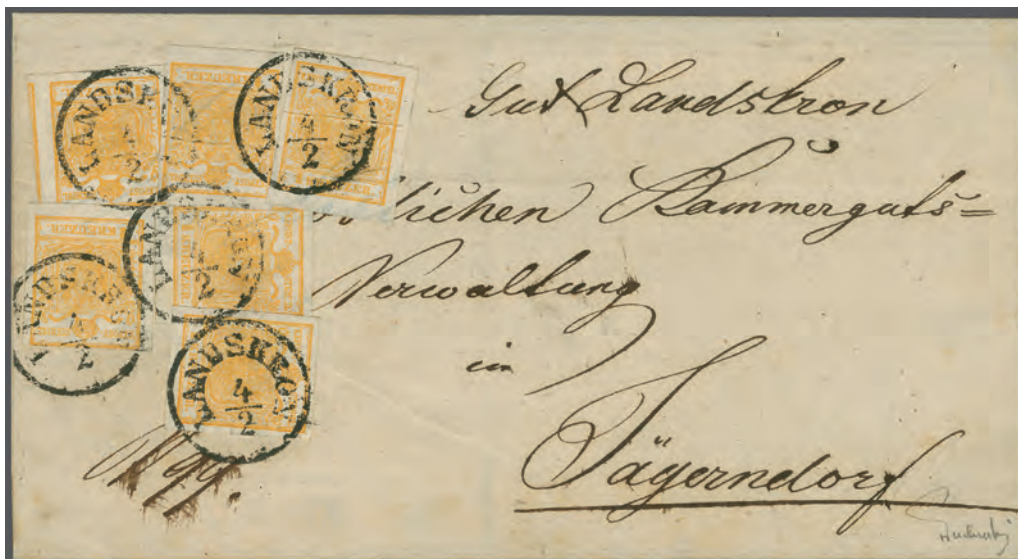 LANDSKRON
4/2
LANDSKRON
4/2
KREUZER
LANDSKRON
4/2
LANDSKRON
4/2
KREUZER
LANDSKRON
4/2
Gut Landskron
lichen Kammerguts=
Verwaltung
in
Jägerndorf